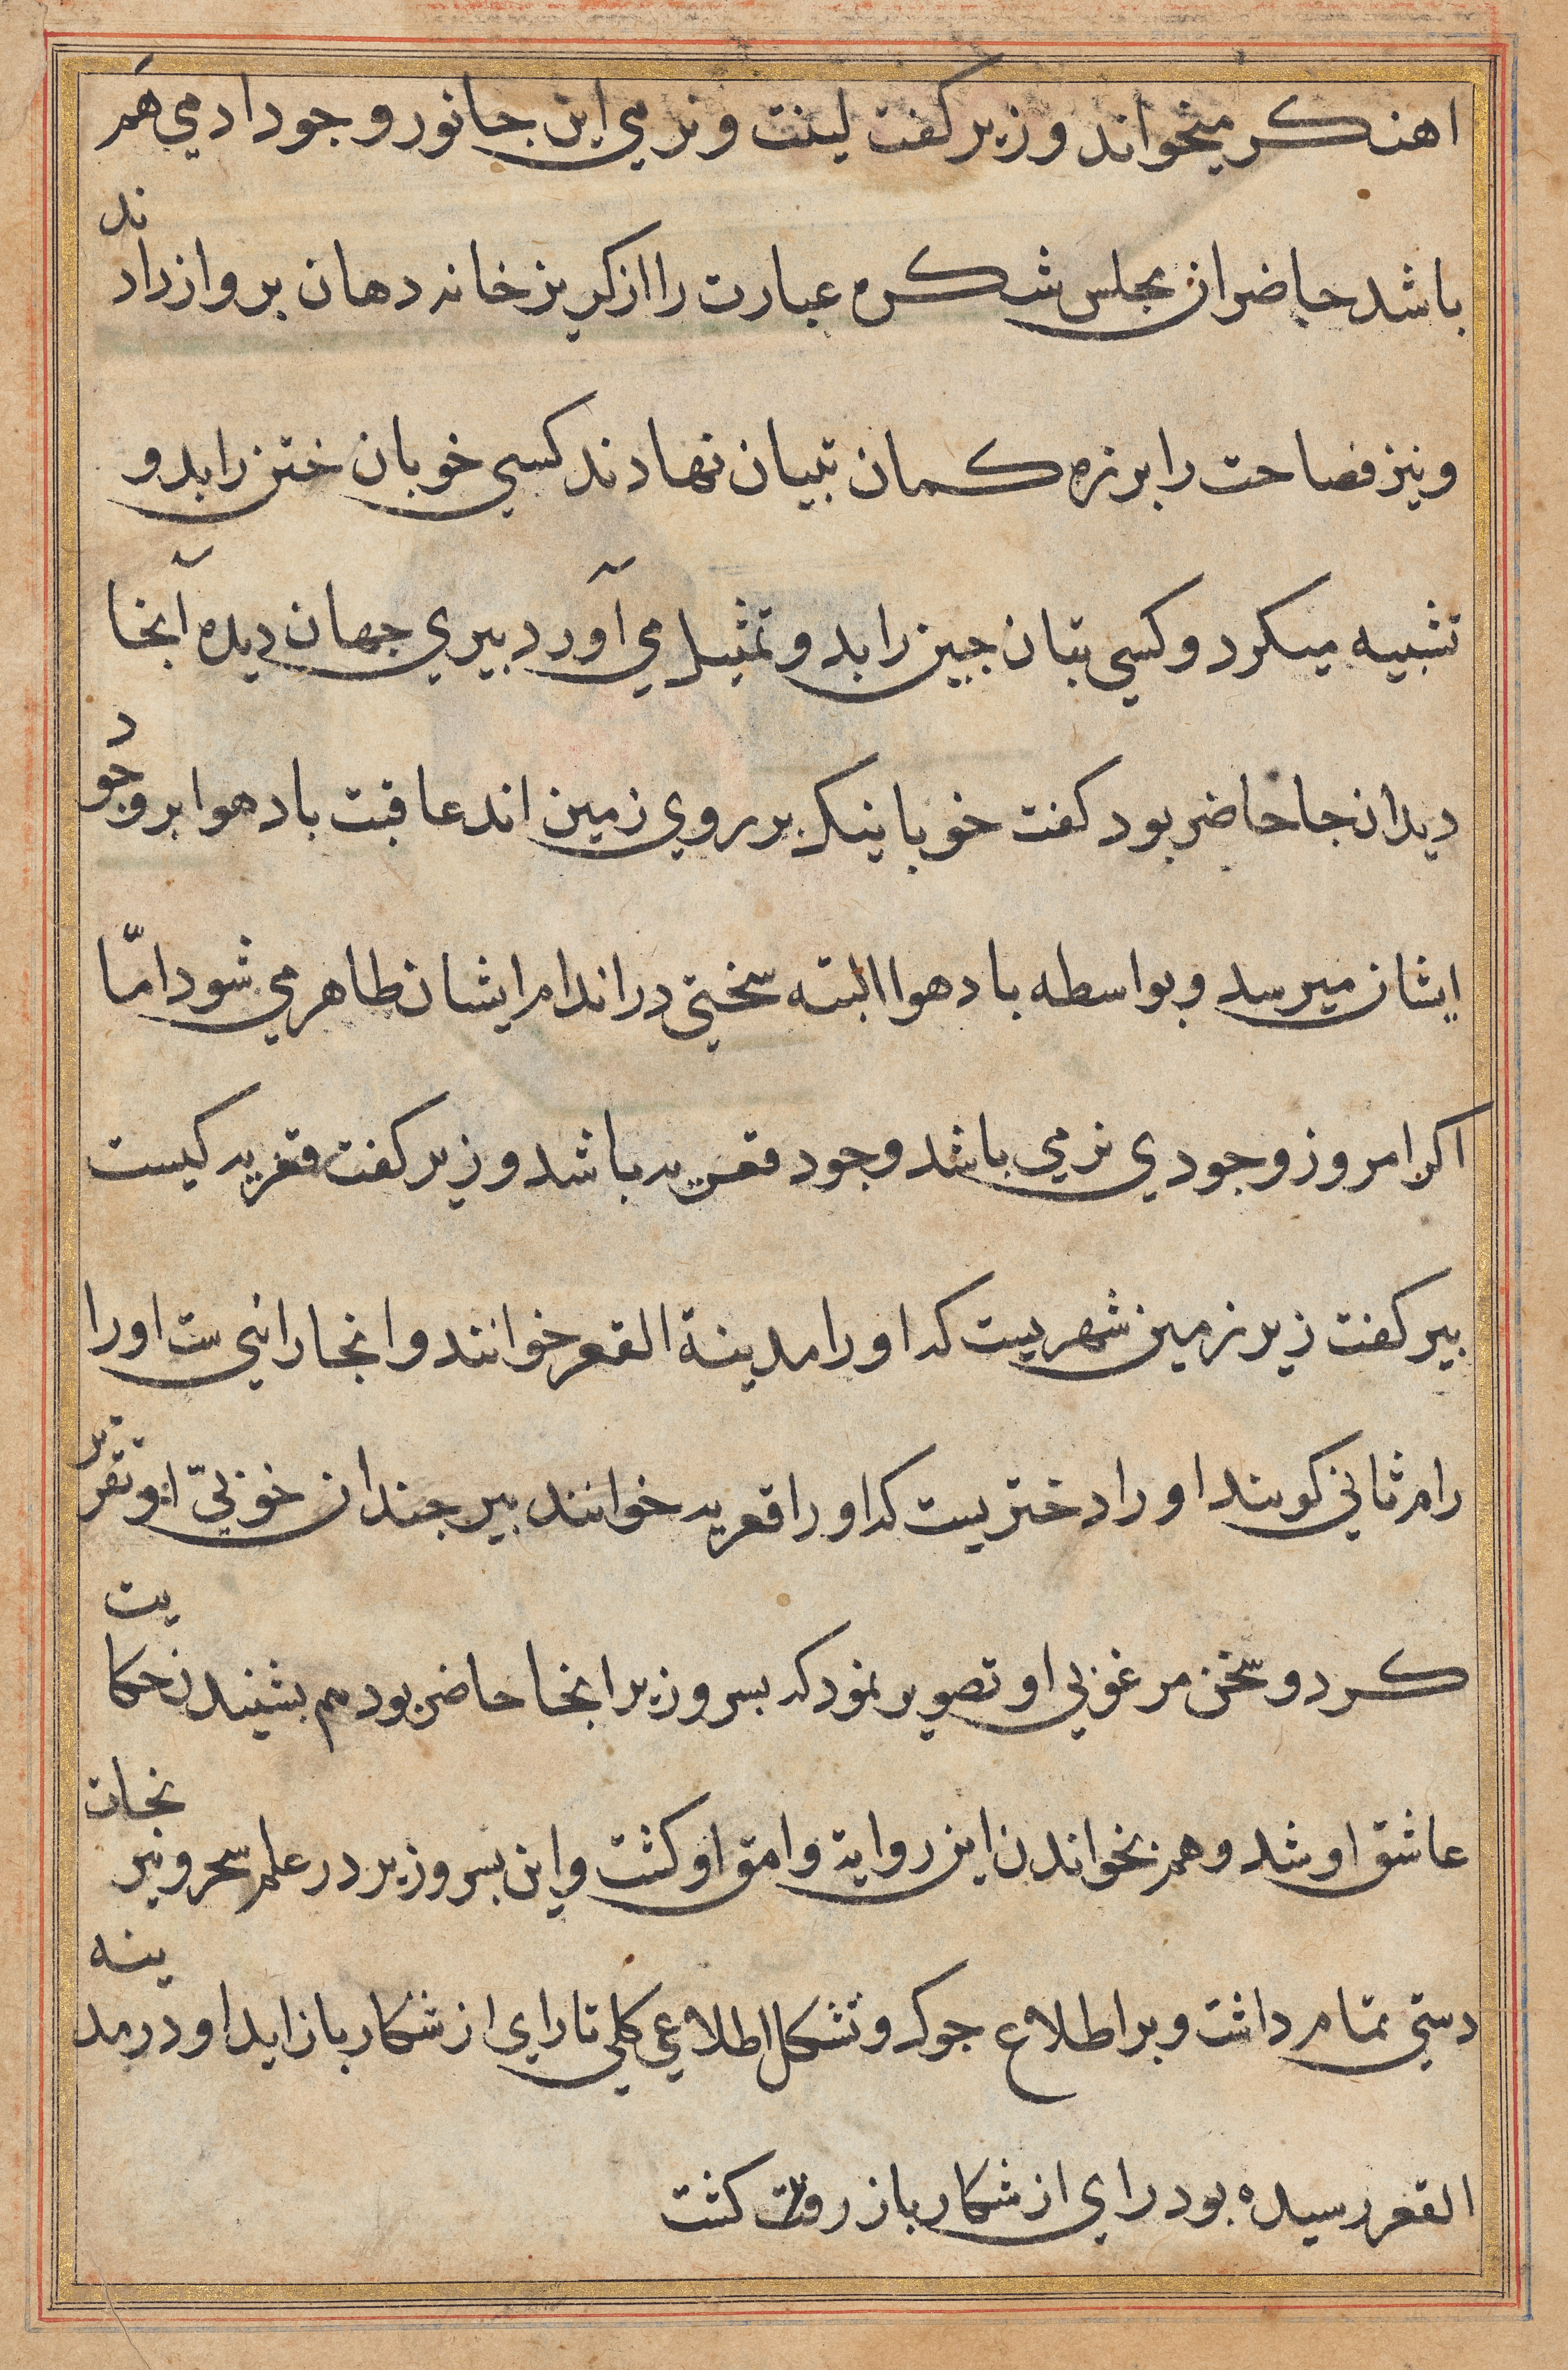 اهنكر ميخواند وزير كفت لينت و نرمي اين جانور وجود ادمي هم
باشد حاضران مجلس شكره عبارت را از كريز خانه دهان برواز دادند
و نيز فصاحت را بر زه كمان تبيان نهادند كسي خوبان ختن را بدو
تشبيه ميكرد و كسي بتان جين را بدو تمثيل مي آورد بيري جهان ديده آنجا
ديد انجا حاضر بود كفت خوبانيكه بر روي زمين اند عاقبت باد هوا بر وجود
ايشان ميرسد و بواسطه باد هوا البته سختي در اندام ايشان ظاهر مي شود امّا
اكر امروز وجودي نرمي باشد وجود قعريه باشد وزير كفت قعريه كيست
بير كفت زير زمين شهريست كه او را مدينة القعر خوانند و انجا رائي ست او را
رام ثاني كويند او را دختريست كه او را قعريه خوانند بير جندان خوبيّ او تقرير
كرد و سخن مرغوبي او تصوير نمود كه بسر وزير انجا حاضر بود هم بشنيدن حكايت
عاشق او شد و هم بخواندن اين رواية وامق او كشت و اين بسر وزير در علم سحر و نيرنجات
دستي تمام داشت و بر اطلاع جوكه و تشكل اطلاعي كلي تا راي از شكار باز ايد او در مدينه
القعر رسيده بود راي از شكار باز كشت